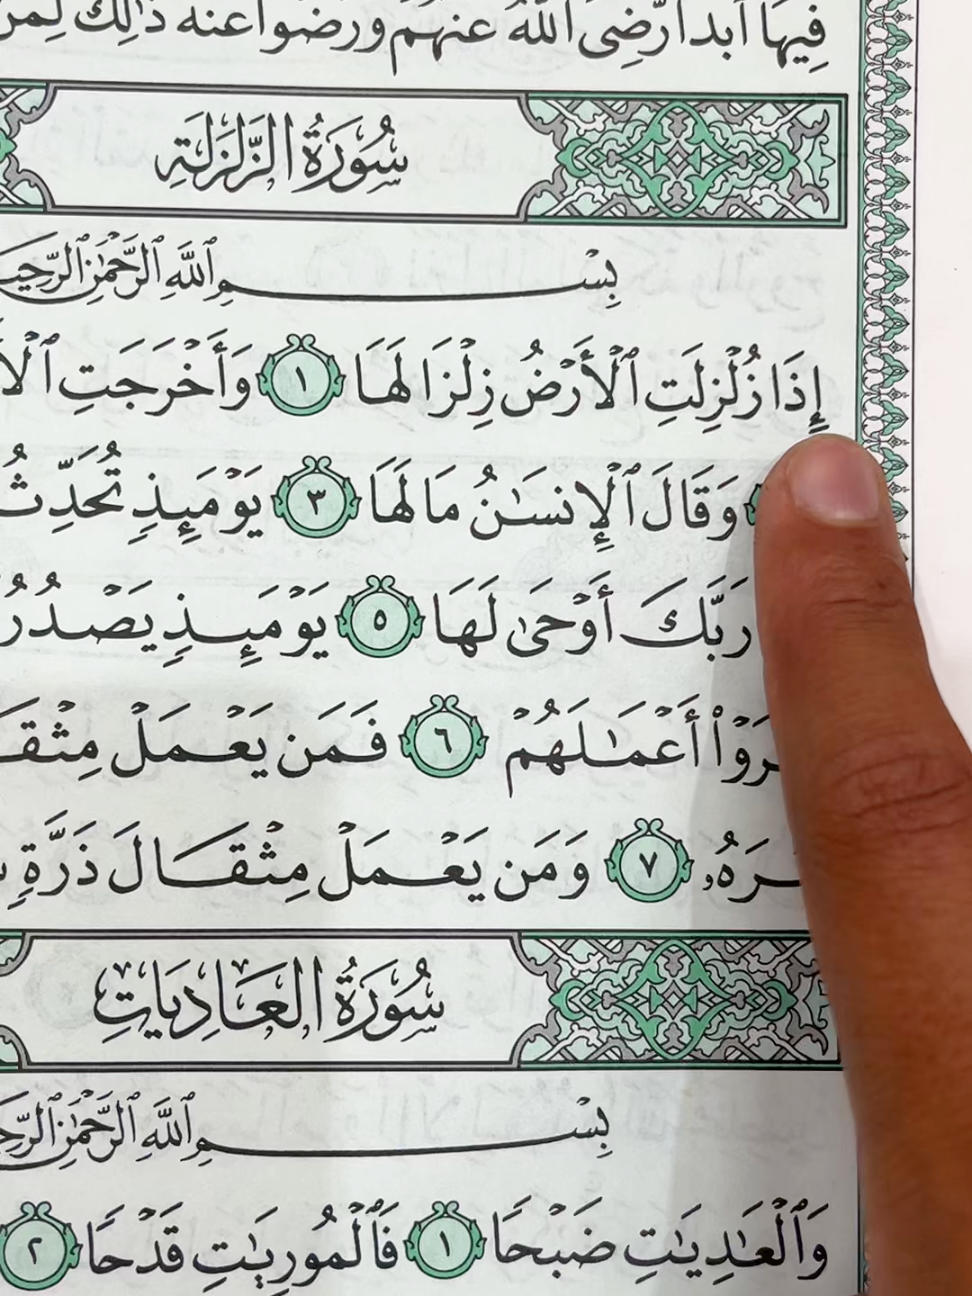 فِيهَآ أَبَدًا رَّضِيَ ٱللَّهُ عَنْهُمْ وَرَضُوا۟ عَنْهُ ذَٰلِكَ لِمَنْ
سُورَةُ الزَّلْزَلَةِ
بِسْمِ ٱللَّهِ ٱلرَّحْمَٰنِ ٱلرَّحِيمِ
إِذَا زُلْزِلَتِ ٱلْأَرْضُ زِلْزَالَهَا ١ وَأَخْرَجَتِ
وَقَالَ ٱلْإِنسَٰنُ مَا لَهَا ٣ يَوْمَئِذٍ تُحَدِّثُ
رَبَّكَ أَوْحَىٰ لَهَا ٥ يَوْمَئِذٍ يَصْدُرُ
أَعْمَٰلَهُمْ ٦ فَمَن يَعْمَلْ
٧ وَمَن يَعْمَلْ مِثْقَالَ ذَرَّةٍ
سُورَةُ العَادِيَاتِ
بِسْمِ ٱللَّهِ ٱلرَّحْمَٰنِ
وَٱلْعَٰدِيَٰتِ ضَبْحًا ١ فَٱلْمُورِيَٰتِ قَدْحًا ٢